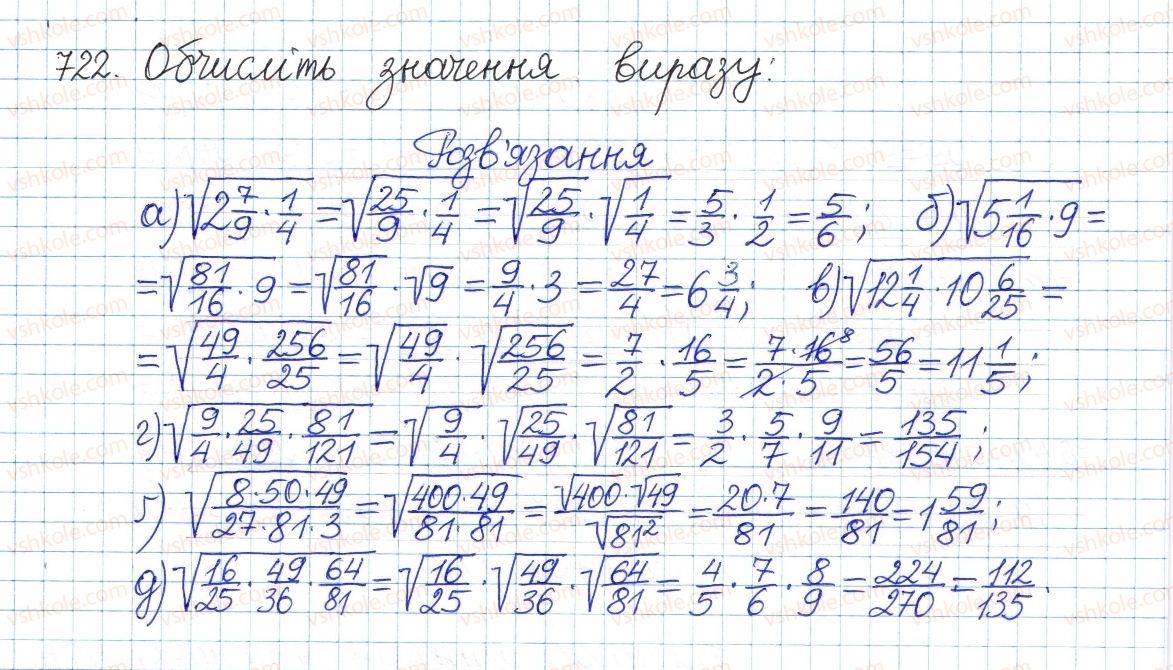 722. Обчисліть значення виразу:
Розв'язання
а) √(2 7/9 · 1/4) = √(25/9 · 1/4) = √(25/9) · √(1/4) = 5/3 · 1/2 = 5/6; б) √(5 1/16 · 9) =
= √(81/16 · 9) = √(81/16) · √9 = 9/4 · 3 = 27/4 = 6 3/4; в) √(12 1/4 · 10 6/25) =
= √(49/4 · 256/25) = √(49/4) · √(256/25) = 7/2 · 16/5 = (7 · 16 8)/(2 · 5) = 56/5 = 11 1/5;
г) √(9/4 · 25/49 · 81/121) = √(9/4) · √(25/49) · √(81/121) = 3/2 · 5/7 · 9/11 = 135/154;
ґ) √((8 · 50 · 49)/(27 · 81 · 3)) = √((400 · 49)/(81 · 81)) = (√400 · √49)/√(81²) = (20 · 7)/81 = 140/81 = 1 59/81;
д) √(16/25 · 49/36 · 64/81) = √(16/25) · √(49/36) · √(64/81) = 4/5 · 7/6 · 8/9 = 224/270 = 112/135.